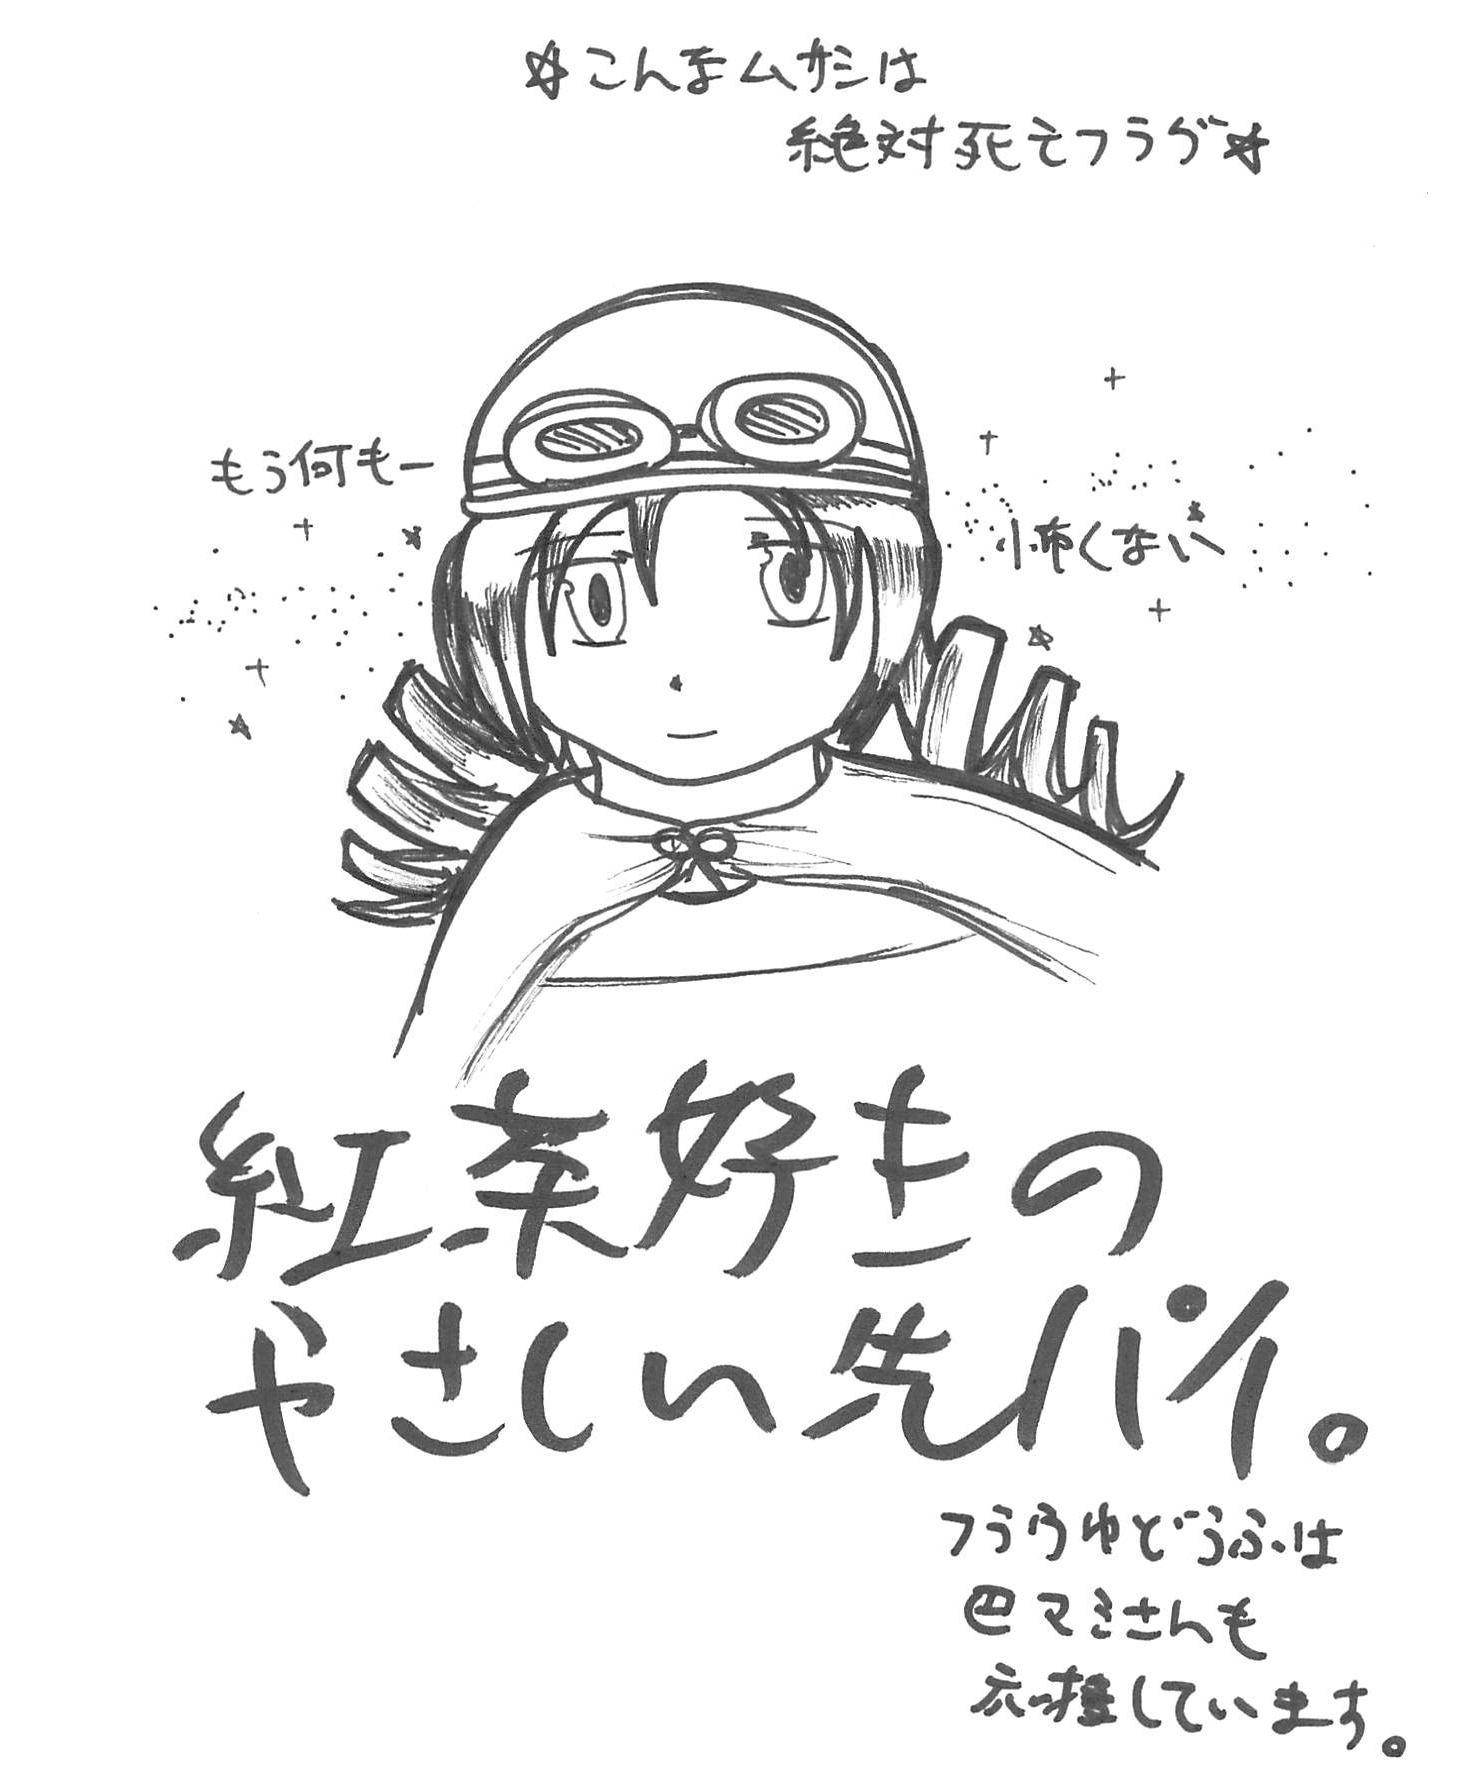 ☆こんなムサシは
絶対死亡フラグ☆
もう何もー
怖くない
紅茶好きの
やさしい先パイ。
フラウゆどうふは
巴マミさんも
応援しています。